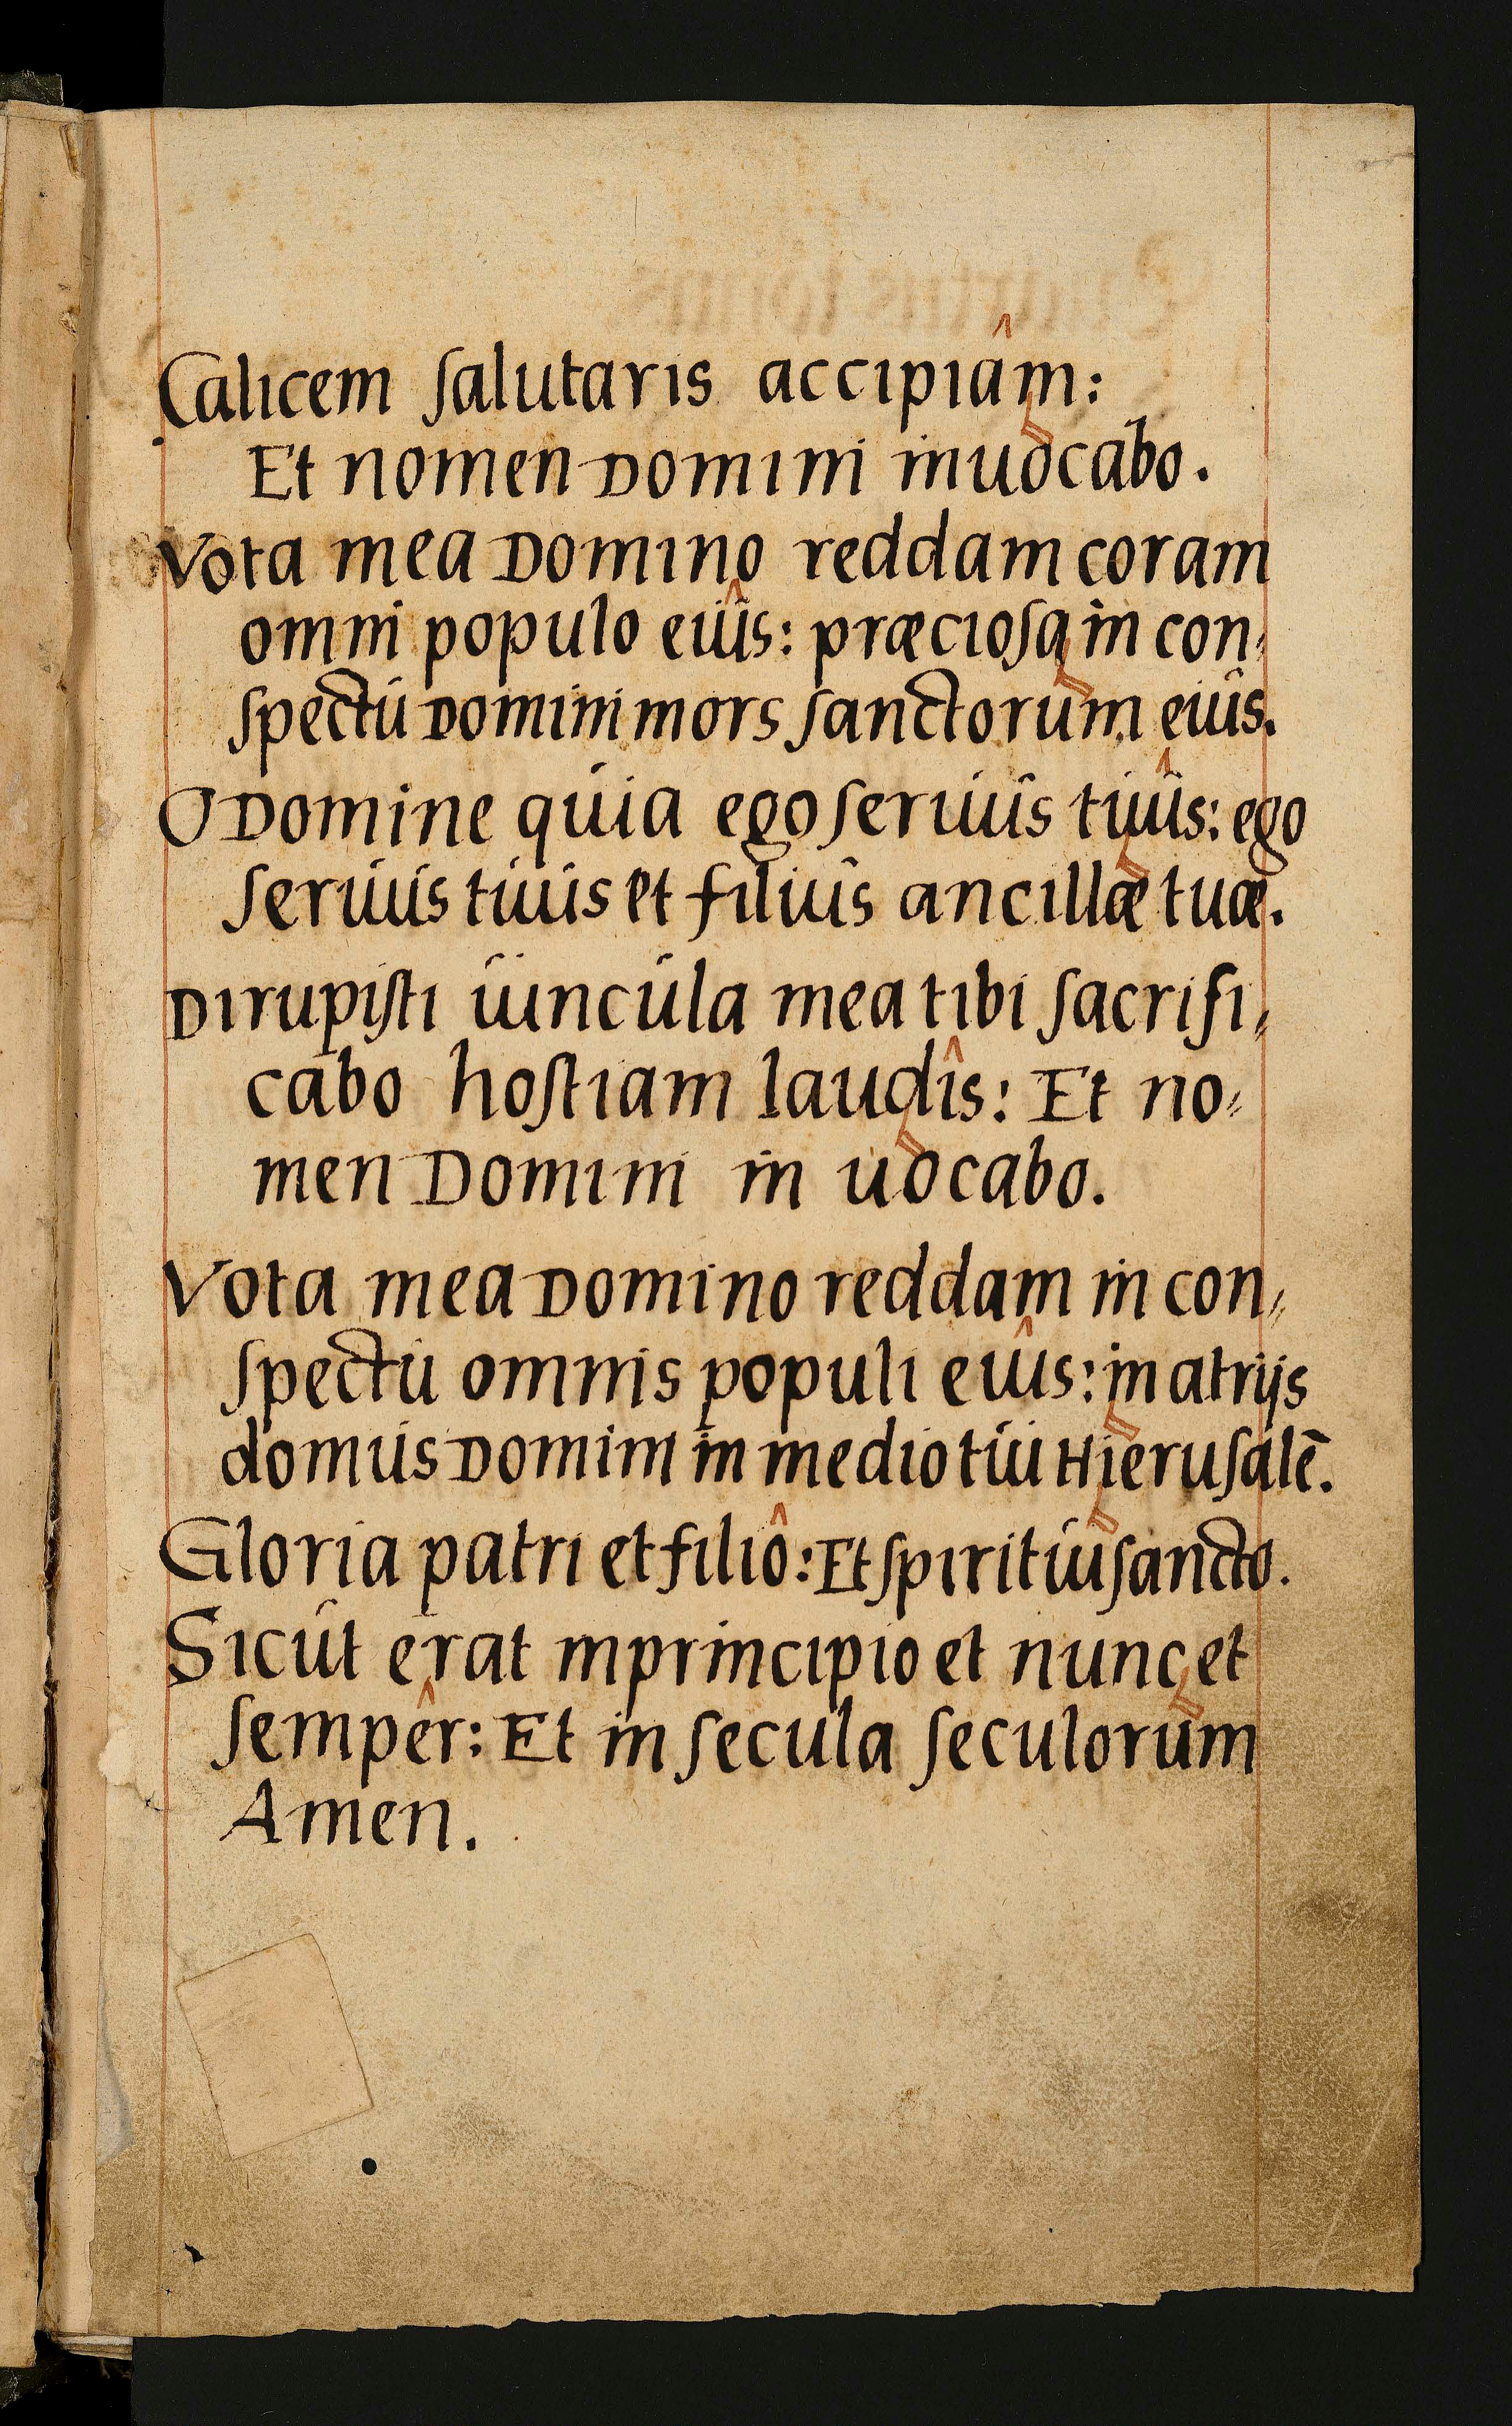 Calicem ſalutaris accipiâm:
Et nomen Domini inuocabo.
Vota mea Domino reddam coram
omni populo eiûs: præcioſa in con⸗
ſpectu Domini mors ſanctorum eius.
O Domine quia ego ſeruus tuûs: ego
ſeruus tuus et filius ancillæ tuæ.
Dirupiſti uincula mea tibi ſacrifi⸗
cabo hoſtiam laudîs: Et no⸗
men Domini in uocabo.
Vota mea Domino reddam in con⸗
ſpectu omnis populi eiûs: in atrijs
domus Domini in medio tui Hieruſalē.
Gloria patri et filiô: Et ſpiritui ſancto.
Sicut erat in principio et nunc et
ſempêr: Et in ſecula ſeculorum
Amen.